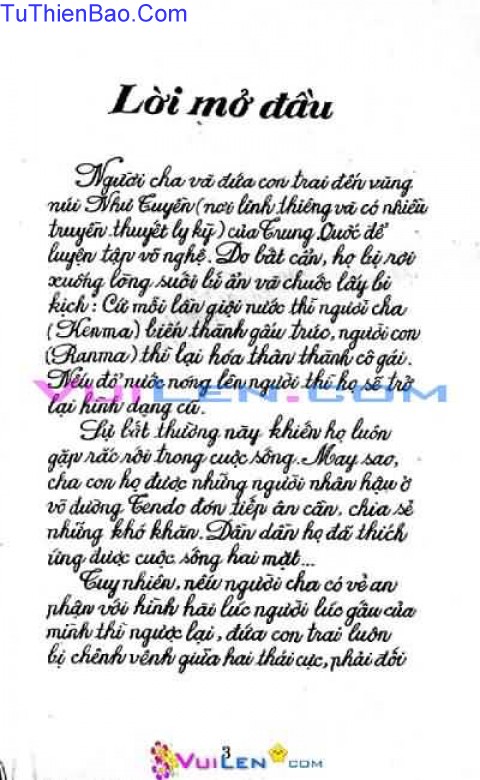 TuThienBao.Com
Lời mở đầu
Người cha và đứa con trai đến vùng
núi Như Tuyền (nơi linh thiêng và có nhiều
truyền thuyết ly kỳ) của Trung Quốc để
luyện tập võ nghệ. Do bất cẩn, họ bị rơi
xuống lòng suối bí ẩn và chuốc lấy bi
kịch: Cứ mỗi lần giội nước thì người cha
(Kenma) biến thành gấu trúc, người con
(Ranma) thì lại hóa thân thành cô gái.
Nếu đổ nước nóng lên người thì họ sẽ trở
VuiLen.com
lại hình dạng cũ.
Sự bất thường này khiến họ luôn
gặp rắc rối trong cuộc sống. May sao,
cha con họ được những người nhân hậu ở
võ đường Tendo đón tiếp ân cần, chia sẻ
những khó khăn. Dần dần họ đã thích
ứng được cuộc sống hai mặt...
Tuy nhiên, nếu người cha có vẻ an
phận với hình hài lúc người lúc gấu của
mình thì ngược lại, đứa con trai luôn
bị chênh vênh giữa hai thái cực, phải đối
3
VuiLen.com